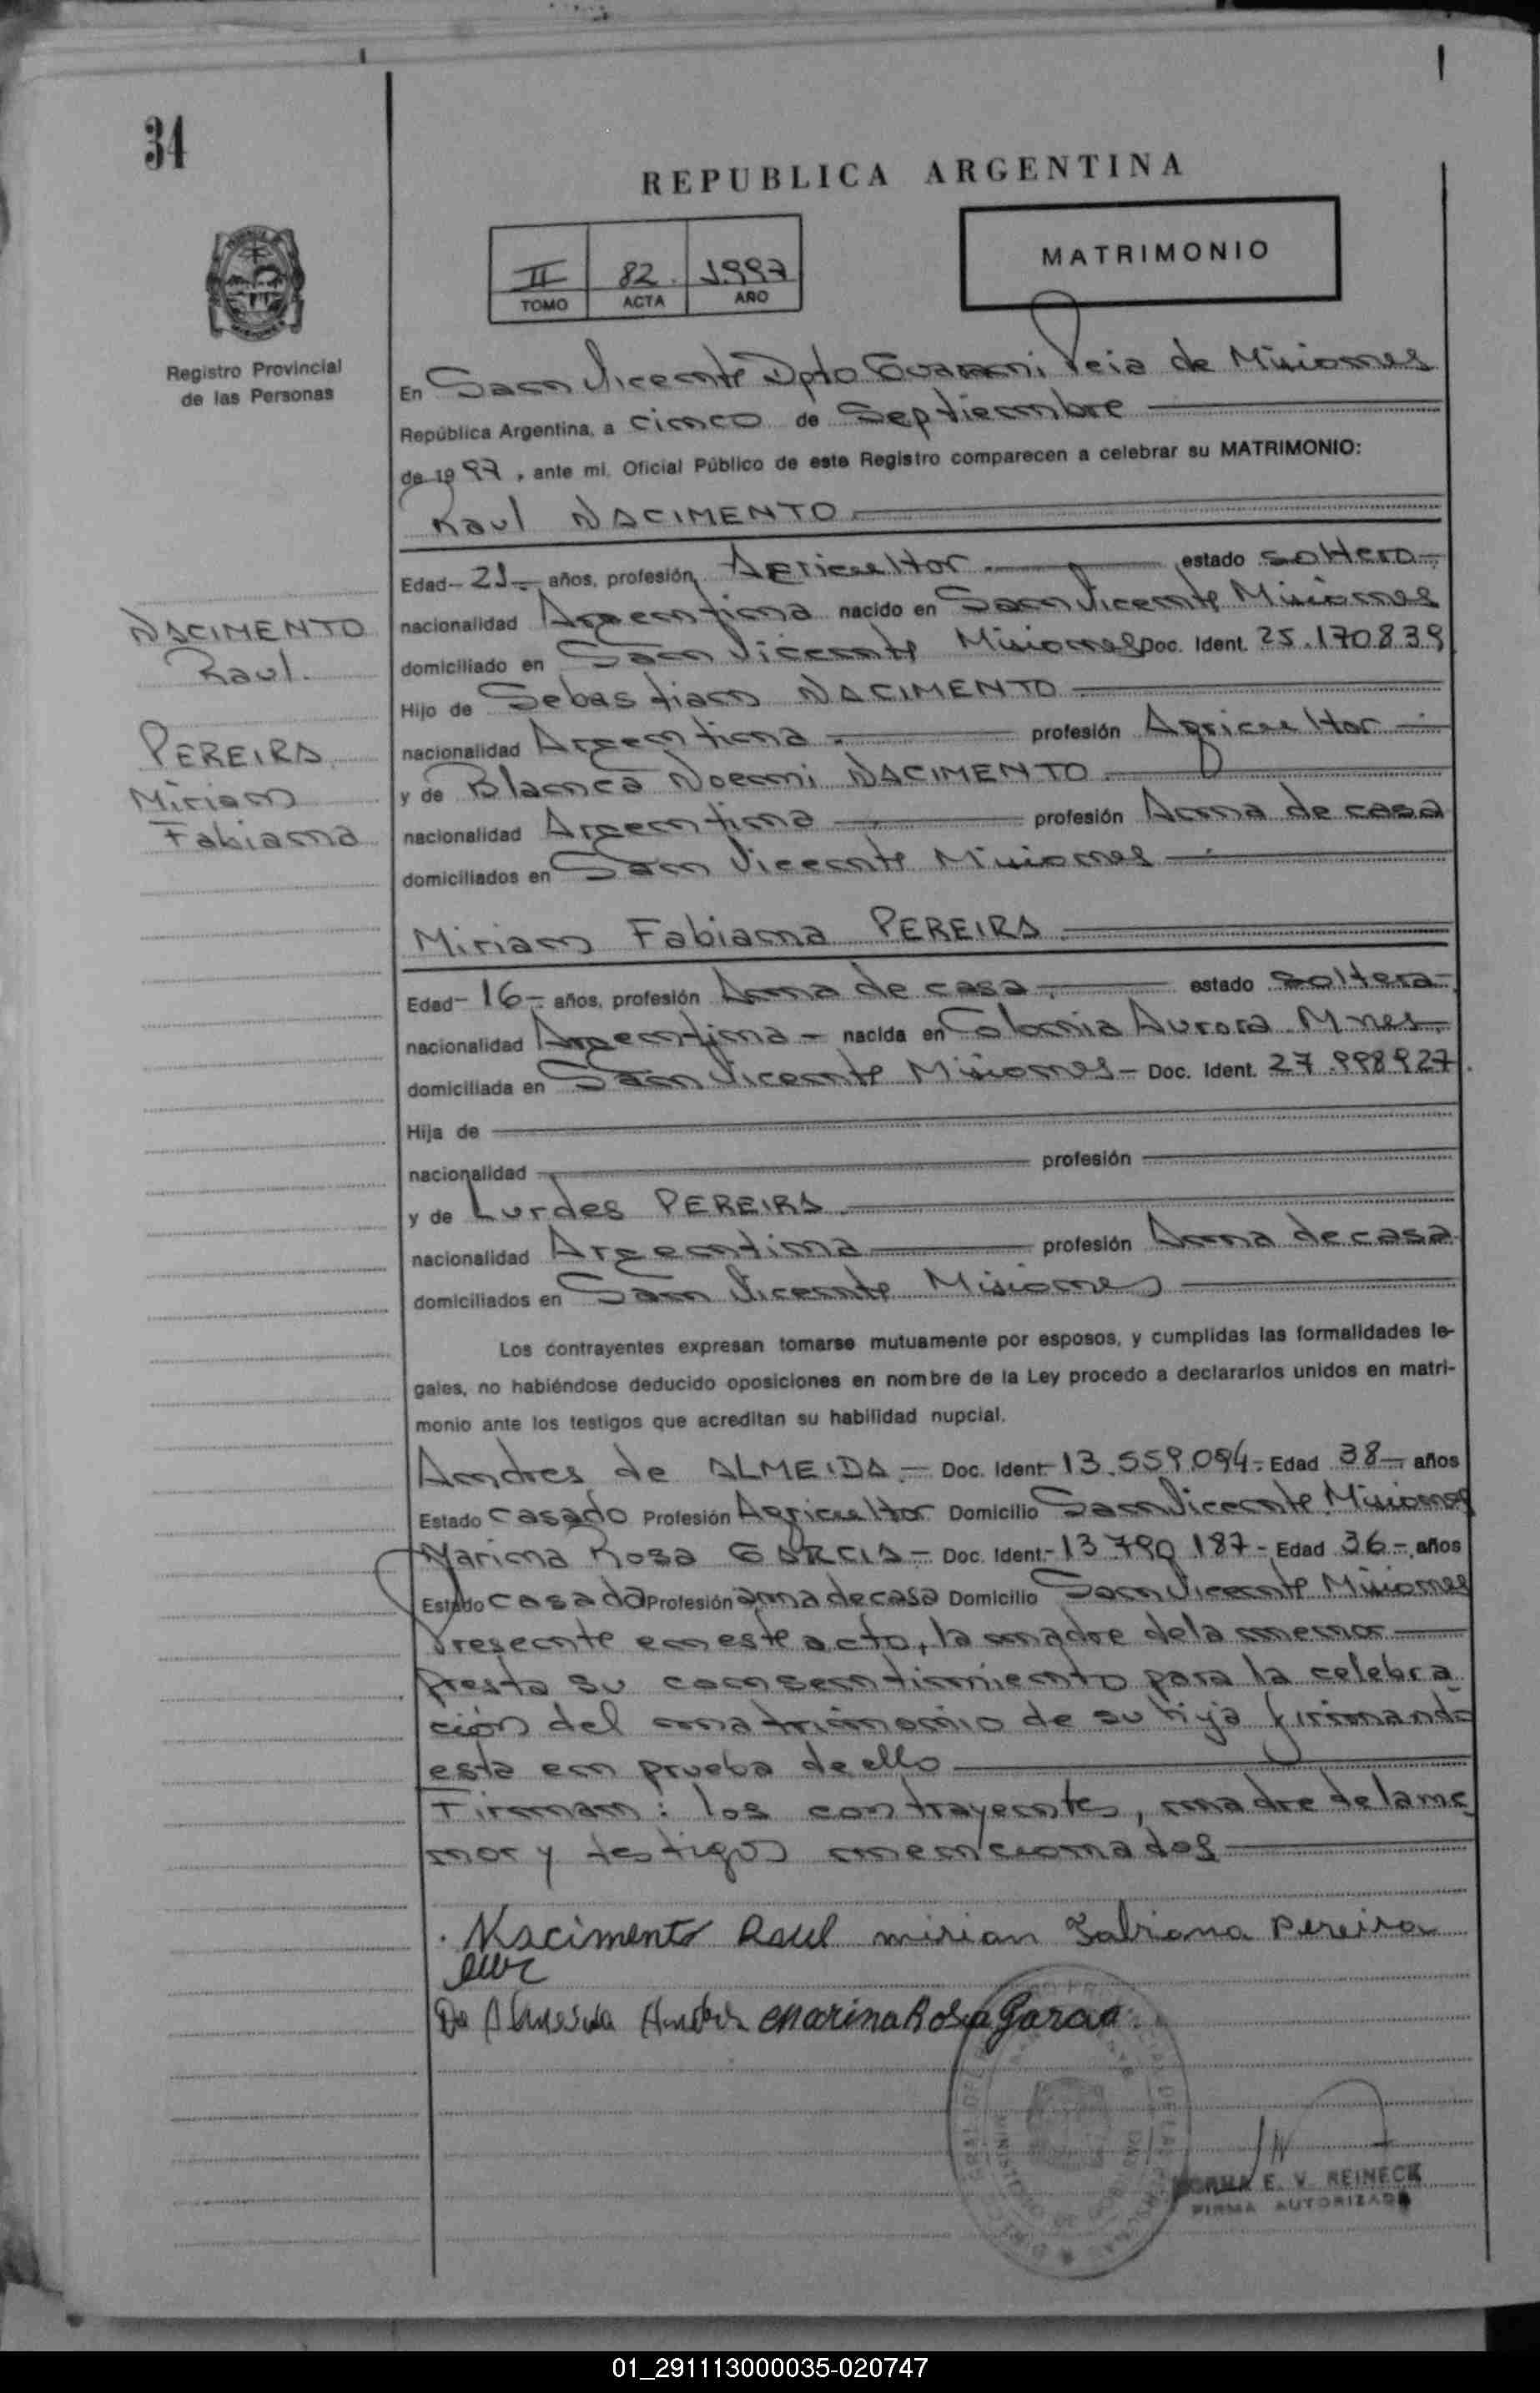 34
REPUBLICA ARGENTINA
II 82. 1997
TOMO ACTA AÑO
MATRIMONIO
Registro Provincial
de las Personas
En San Vicente Dpto Guarani Pcia de Misiones
República Argentina, a cinco de Septiembre
de 1997, ante mi, Oficial Público de este Registro comparecen a celebrar su MATRIMONIO:
Raul NACIMENTO
Edad- 21.- años, profesión Agricultor estado soltero-
nacionalidad Argentina nacido en San Vicente Misiones
domiciliado en San Vicente Misiones Doc. Ident. 25.170.839
Hijo de Sebastian NACIMENTO
nacionalidad Argentina.- profesión Agricultor
y de Blanca Noemi NACIMENTO
nacionalidad Argentina profesión Ama de casa
domiciliados en San Vicente Misiones
NACIMENTO
Raul.
PEREIRA
Miriam
Fabiana
Miriam Fabiana PEREIRA
Edad- 16-. años, profesión Ama de casa.- estado soltera-
nacionalidad Argentina - nacida en Colonia Aurora Mnes.
domiciliada en San Vicente Misiones - Doc. Ident. 27.998927.
Hija de
nacionalidad profesión
y de Lurdes PEREIRA
nacionalidad Argentina profesión Ama de casa
domiciliados en San Vicente Misiones
Los contrayentes expresan tomarse mutuamente por esposos, y cumplidas las formalidades le-
gales, no habiéndose deducido oposiciones en nombre de la Ley procedo a declararlos unidos en matri-
monio ante los testigos que acreditan su habilidad nupcial.
Andres de ALMEIDA.- Doc. Ident.- 13.559.094-. Edad 38-. años
Estado casado Profesión Agricultor Domicilio San Vicente Misiones
Marina Rosa GARCIA - Doc. Ident.- 13 790 187- Edad 36-. años
Estado casada Profesión ama de casa Domicilio San Vicente Misiones
Presente en este acto, la madre de la menor
presta su consentimiento para la celebra
ción del matrimonio de su hija firmando
esta en prueba de ello
Firman: los contrayentes, madre de la me
nor y testigos mencionados
Nacimento Raul mirian Fabiana Pereira
De Almeida Andres Marina Rosa Garcia.
NORMA E. V. REINECK
FIRMA AUTORIZADA
01_291113000035-020747